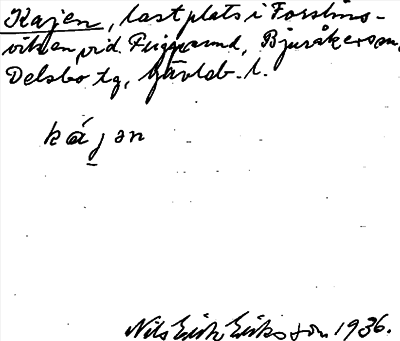 Kajen, lastplats i Forslins-
viken vid Friggesund, Bjuråkers sn,
Delsbo tg, Gävleb. l.
kájan
Nils Erik Eriksson 1936.